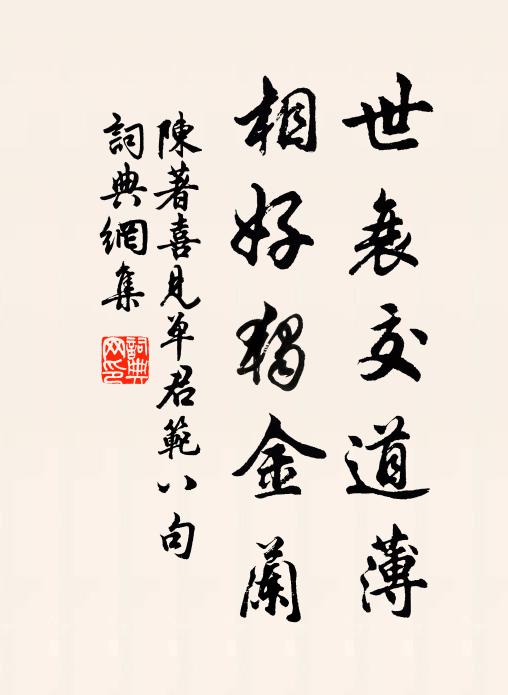 世衰交道薄
相好獨金蘭
陳著喜見單君範八句
詞典網集
詞典網印